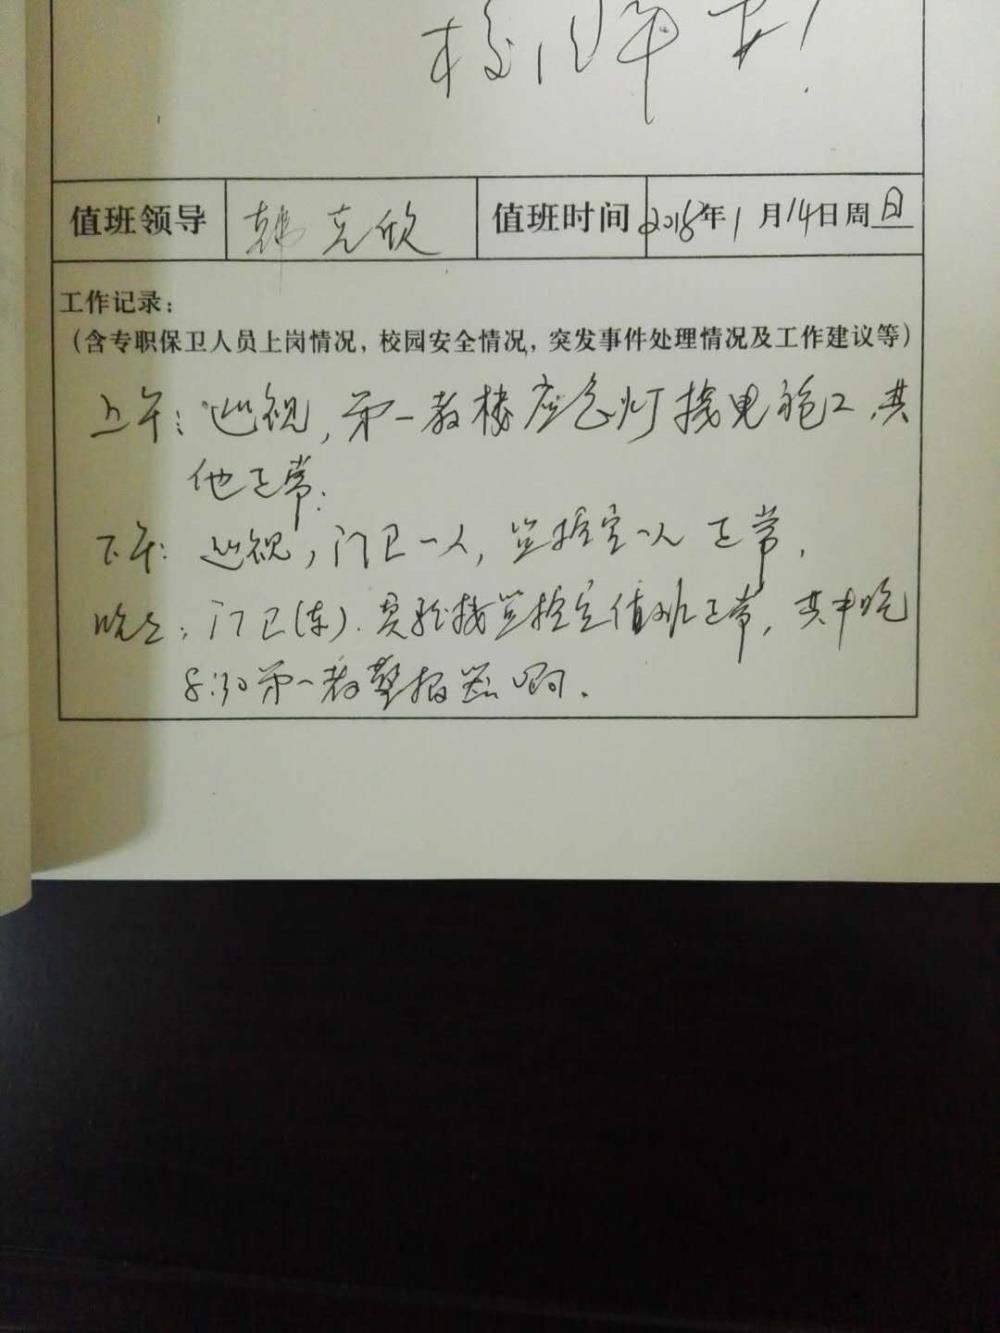 值班领导 韩克欣 值班时间 2018年1月14日周日
工作记录：
（含专职保卫人员上岗情况，校园安全情况，突发事件处理情况及工作建议等）
上午：巡视，第一教楼应急灯接电施工，其
他正常．
下午：巡视，门卫一人，监控室一人 正常．
晚上：门卫(车)．实验楼监控室值班正常，其中晚
8:30第一教警报器响．